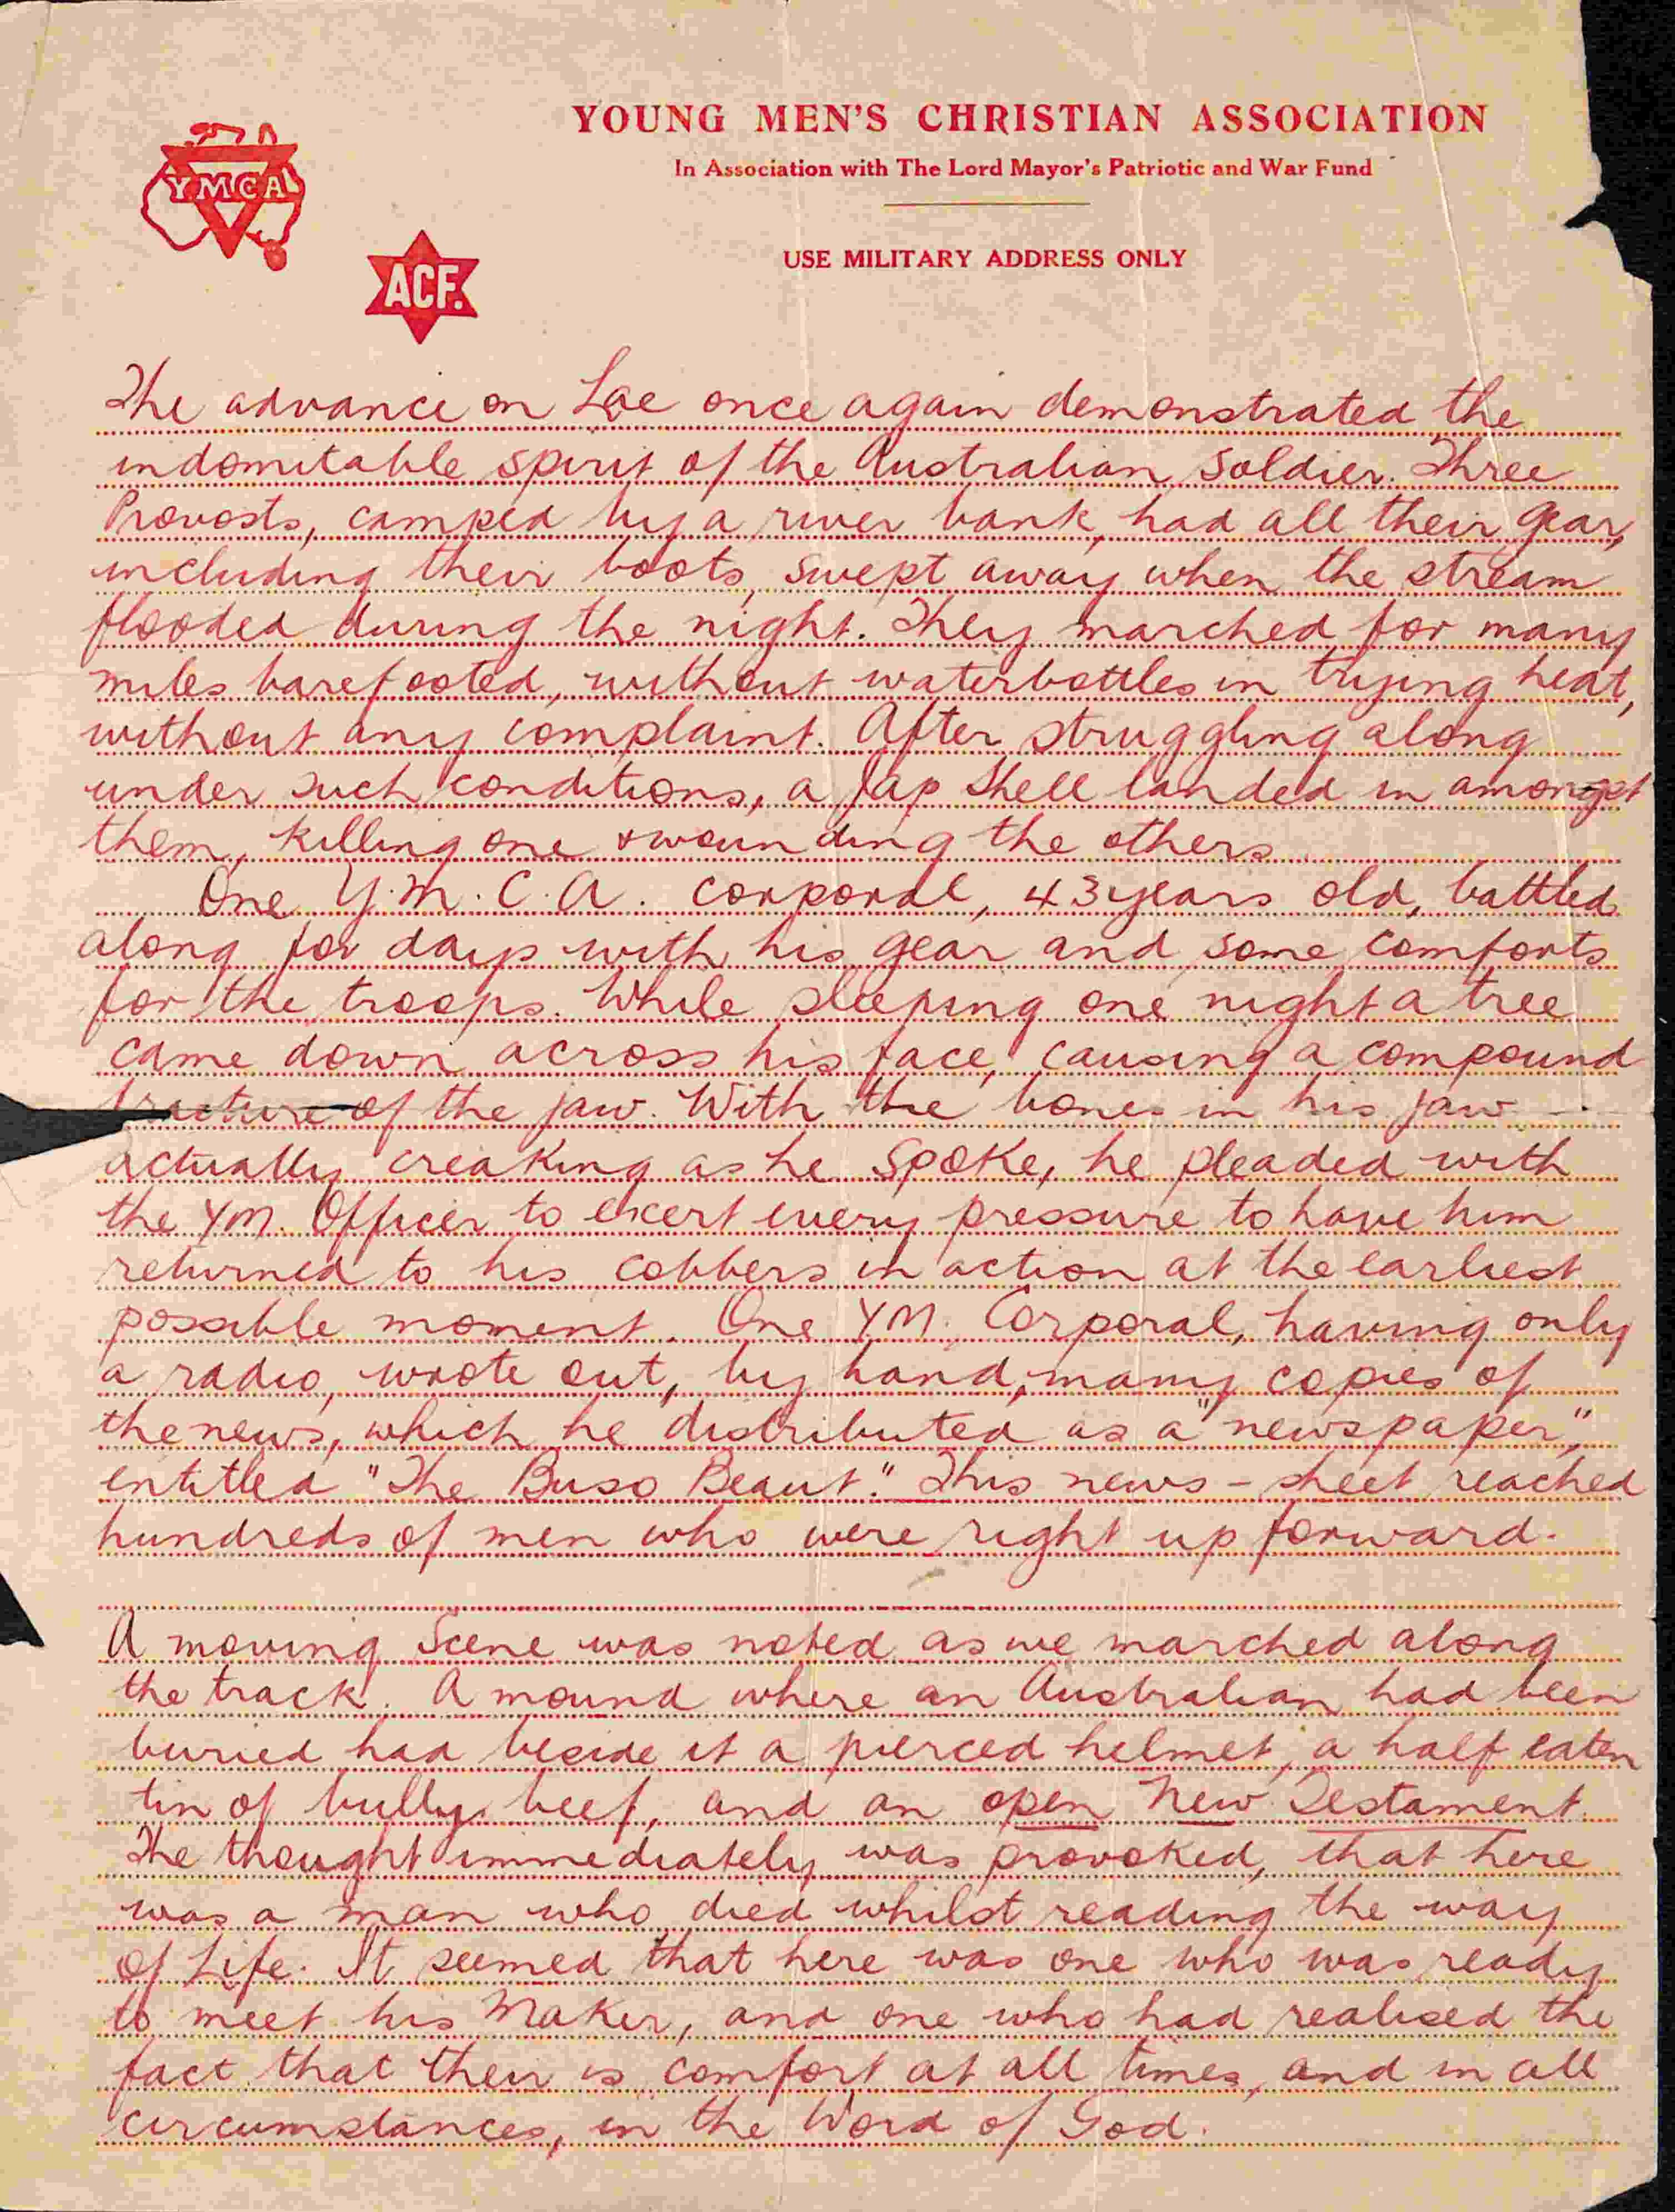 YOUNG MEN'S CHRISTIAN ASSOCIATION
In Association with The Lord Mayor's Patriotic and War Fund
YMCA
USE MILITARY ADDRESS ONLY
ACF.
The advance on Lae once again demonstrated the
indomitable spirit of the Australian soldier. Three
Provosts, camped by a river bank, had all their gear,
including their boots, swept away when the stream
flooded during the night. They marched for many
miles barefooted, without waterbottles in trying heat,
without any complaint. After struggling along
under such conditions, a Jap shell landed in amongst
them, killing one & wounding the others
One Y.M.C.A. corporal, 43 years old, battled
along for days with his gear and some comforts
for the troops. While sleeping one night a tree
came down across his face, causing a compound
fracture of the jaw. With the bones in his jaw
actually creaking as he spoke, he pleaded with
the YM. Officer to exert every pressure to have him
returned to his cobbers in action at the earliest
possible moment. One YM. Corporal, having only
a radio, wrote out, by hand, many copies of
the news, which he distributed as a "newspaper,"
entitled "The Buso Beaut." This news-sheet reached
hundreds of men who were right up forward.
A moving scene was noted as we marched along
the track. A mound where an Australian had been
buried had beside it a pierced helmet, a half eaten
tin of bully beef, and an open New Testament.
The thought immediately was provoked, that here
was a man who died whilst reading the way
of Life. It seemed that here was one who was ready
to meet his Maker, and one who had realised the
fact that their is comfort at all times, and in all
circumstances, in the Word of God.